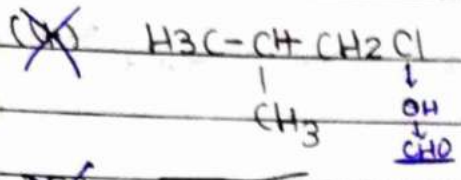 H3C-CH-CH2Cl
|
CH3
↓
OH
↓
CHO